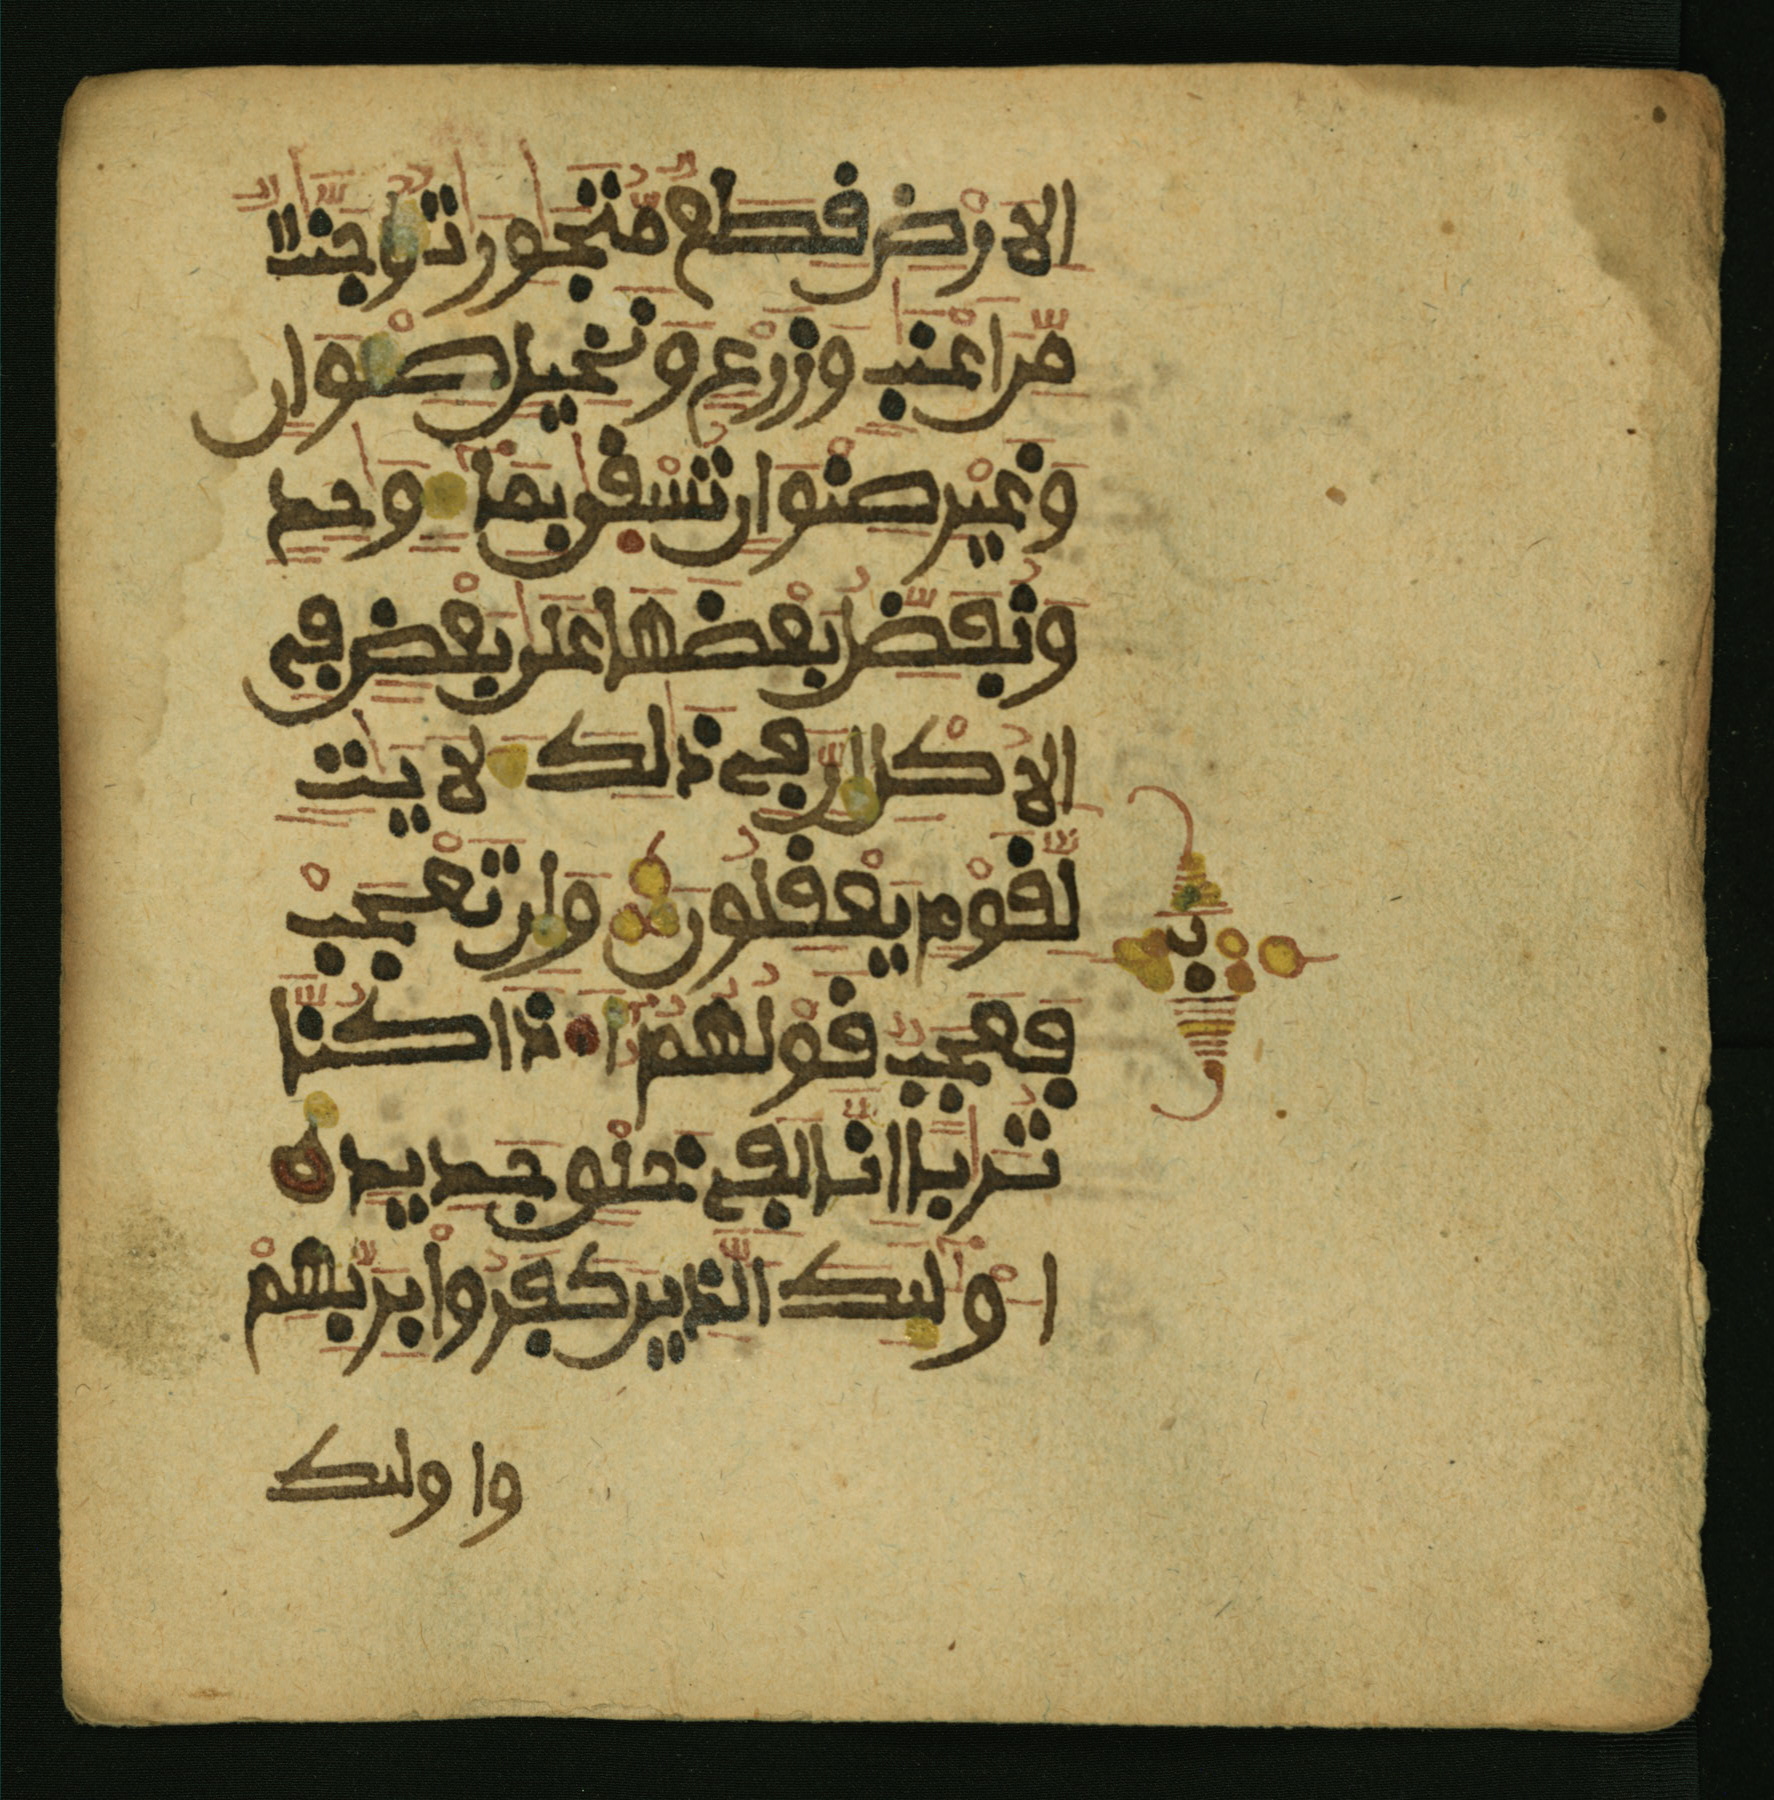 الَارْضِ قِطَعٌ مُّتَجَٰوِرَٰتٌ وَجَنَّٰتٌ
مِّنَ اَعْنَٰبٍ وَزَرْعٍ وَنَخِيلٍ صِنْوَانٍ
وَغَيْرِ صِنْوَانٍ تُسْقَىٰ بِمَآءٍ وَٰحِدٍ
وَنُفَضِّلُ بَعْضَهَا عَلَىٰ بَعْضٍ فِي
الُاكْلِ إِنَّ فِي ذَٰلِكَ لَأَيَٰتٍ
لِّقَوْمٍ يَعْقِلُونَ وَإِن تَعْجَبْ
فَعَجَبٌ قَوْلُهُمُ أَ.ذَا كُنَّا
تُرَٰبًا اِنَّا لَفِي خَلْقٍ جَدِيدٍ ه
اُوْلَٰٓئِكَ الَّذِينَ كَفَرُواْ بِرَبِّهِمْ
واوليك
ب